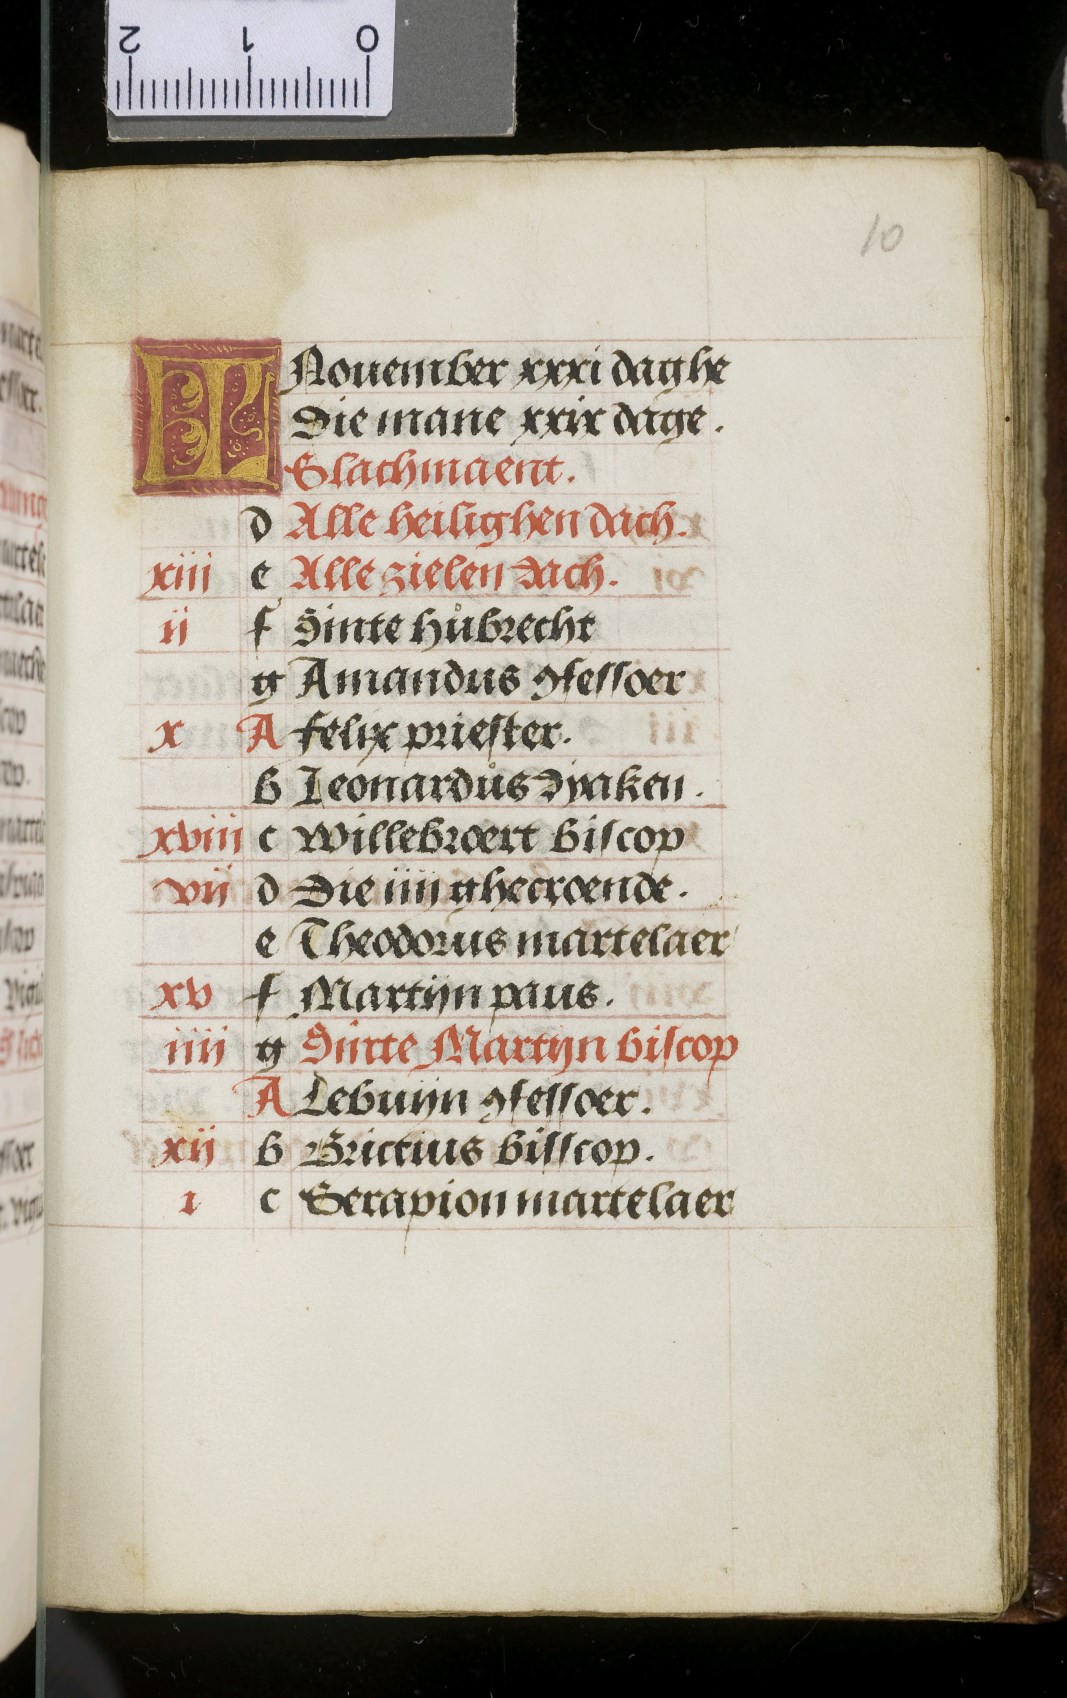 2 1 0
10
KL Nouember xxxi daghe
Die mane xxix dage.
Slachmaent.
d Alle heilighen dach.
xiii e Alle zielen dach.
ii f Sinte hůbrecht
g Amandus ꝯfessoer
x A felix priester.
b Leonardůs dyaken.
xviii c willebroert biscop
vii d Die iiii ghecroende.
e Theodorus martelaer
xv f Martijn paus.
iiii g Sinte Martijn biscop
A Lebuijn ꝯfessoer.
xii b Brictius bisscop.
i c Serapion martelaer